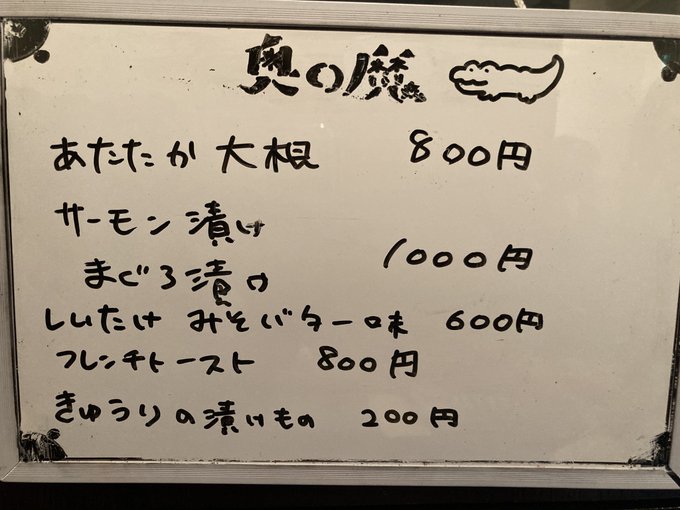 奥の魔
あたたか大根 800円
サーモン漬け
まぐろ漬け 1000円
しいたけ みそバター味 600円
フレンチトースト 800円
きゅうりの漬けもの 200円